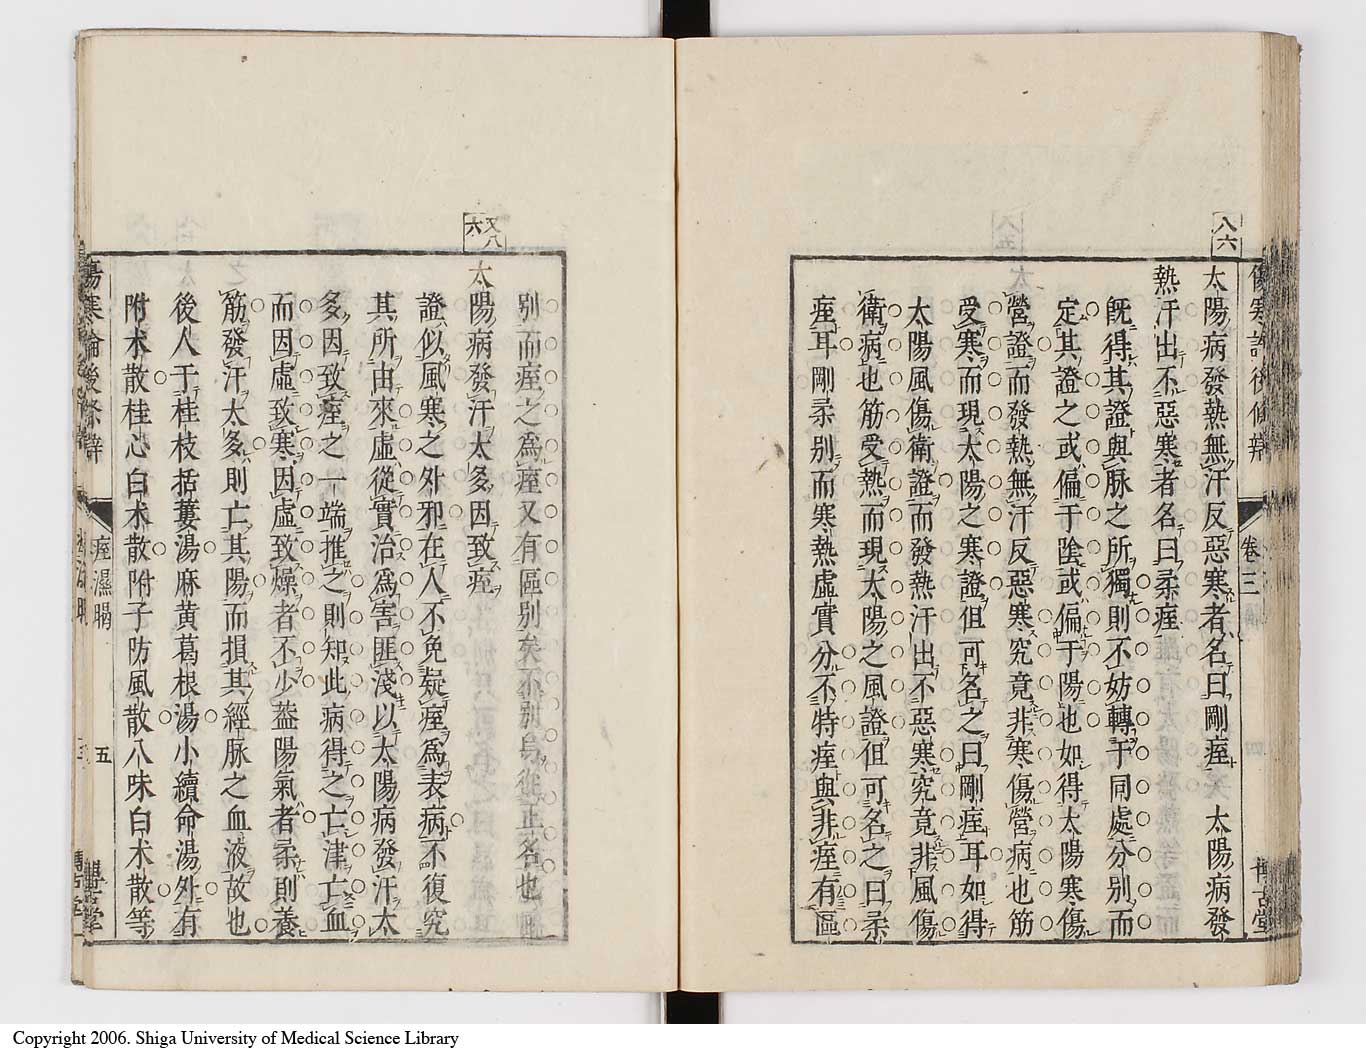 八六
太陽病發熱無汗反惡寒者名曰剛痓 太陽病發
熱汗出不惡寒者名曰柔痓
既得其證與脉之所獨則不妨轉于同處分別而
定其證之或偏于陰或偏于陽也如得太陽寒傷
營證而發熱無汗反惡寒究竟非寒傷營病也筋
受寒而現太陽之寒證但可名之曰剛痓耳如得
太陽風傷衛證而發熱汗出不惡寒究竟非風傷
衛病也筋受熱而現太陽之風證但可名之曰柔
痓耳剛柔別而寒熱虛實分不特痓與非痓有區
卷三
別而痓之爲痓又有區別矣不別烏從正名也
又八六
太陽病發汗太多因致痓
證似風寒之外邪在人不免疑痓爲表病不復究
其所由來虛從實治為害匪淺以太陽病發汗太
多因致痓之一端推之則知此病得之亡津亡血
而因虛致寒因虛致燥者不少蓋陽氣者柔則養
筋發汗太多則亡其陽而損其經脉之血液故也
後人于桂枝括蔞湯麻黄葛根湯小續命湯外有
附术散桂心白术散附子防風散八味白术散等
傷寒論後條辨
痓濕暍
五